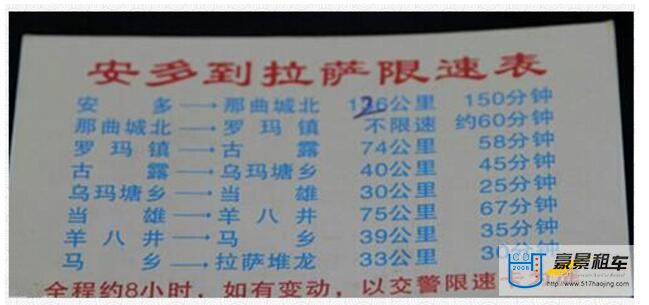 安多到拉萨限速表
安多→那曲城北 126公里 150分钟
那曲城北→罗玛镇 不限速 约60分钟
罗玛镇→古露 74公里 58分钟
古露→乌玛塘乡 40公里 45分钟
乌玛塘乡→当雄 30公里 25分钟
当雄→羊八井 75公里 67分钟
羊八井→马乡 39公里 35分钟
马乡→拉萨堆龙 33公里 30
全程约8小时，如有变动，以交警限速
豪景租车
www.517haojing.com